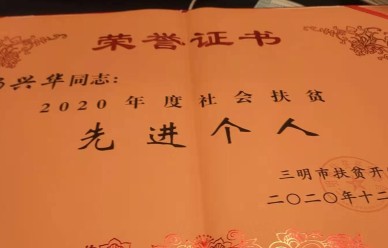 荣誉证书
兴华同志：
2020年度社会扶贫
先进个人
三明市扶贫开
二〇二〇年十二